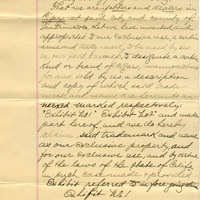 That we are jobbers and dealers in
Cigars at said city and county of
San Francisco, that we have invented and
appropriated to our exclusive use, a certain
to be used by us
in our said business, to designate a certain
kind or brand of Cigars
for and sold by us, a description
and copy of which said trade
mark and name are hereunto an-
nexed marked respectively,
"Exhibit No 1" "Exhibit No 2" and made
part hereof, and we do hereby
claim said trademark and name
as our exclusive property, and
for our exclusive use, and by virtue
of the laws of the State of California
in such case made & provided
Exhibit referred to in foregoing
Exhibit No 1